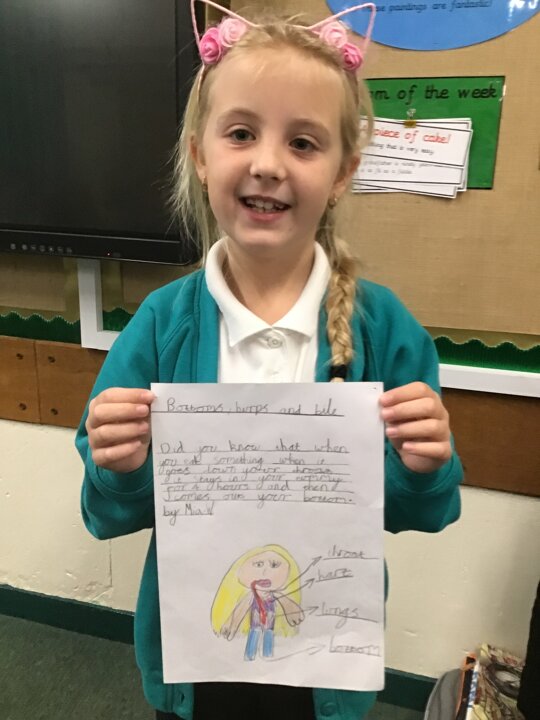 se paintings are fantastic!
om of the week
piece of cake!
thing that is very easy.
Bottoms, burps and bile
Did you know that when
you eat something when it
goes down your throat
it stays in your tummy
for 4 hours and then
comes out your bottom.
by Mia.W
throat
hart
longs
bottom